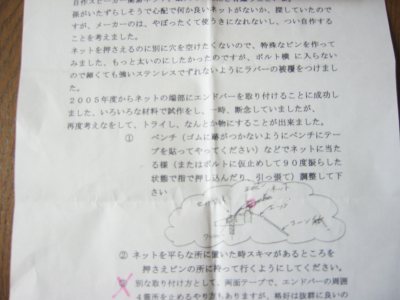 孫がいたずらしそうで心配で何か良いネットがないか、探していたので
すが、メーカーのは、やぼったくて使うきになれないし、つい自作する
ことを考えました。
ネットを押さえるのに別に穴を空けたくないので、特殊なピンを作って
みました、もっと太いのにしたかったのですが、ボルト横 に入らない
ので細くても強いステンレスでずれないようにラバーの被覆をつけまし
た。
2005年度からネットの端部にエンドバーを取り付けることに成功し
ました、いろいろな材料で試作をし、一時、断念していましたが、
再度考えなをして、トライし、なんとか物にすることが出来ました。
① ペンチ(ゴムに跡がつかないようにペンチにテー
プを貼ってやってください)などでネットに当た
る様(またはボルトに仮止めして90度振らした
状態で指で押し込んだり、引っ張て)調整して下
さい
② ネットを平らな所に置いた時スキマがあるところを
押さえピンの所に持って行くようにしてください。
別な取り付け方として、両面テープで、エンドバーの周囲
4箇所を止めるやり方もありますが、格好は抜群に良いの